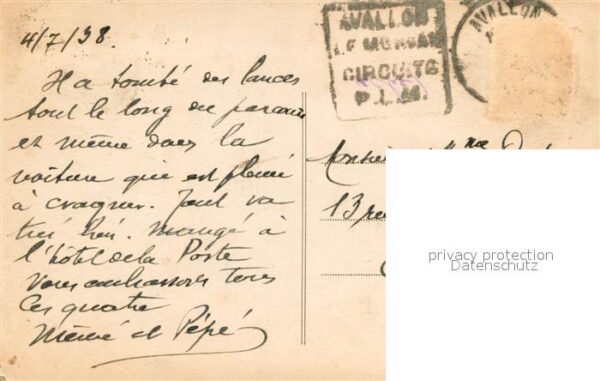 4/7/38.
Il a tombé des lances
tout le long du parcours
et même dans la
voiture qui est pleine
à craquer. Tout va
très bien. Mangé à
l'hôtel de la Poste
Vous embrassons tous
les quatre
Mémé et Pépé
AVALLON
LE MORVAN
CIRCUITS
P.L.M.
AVALLON
13 rue
privacy protection
Datenschutz